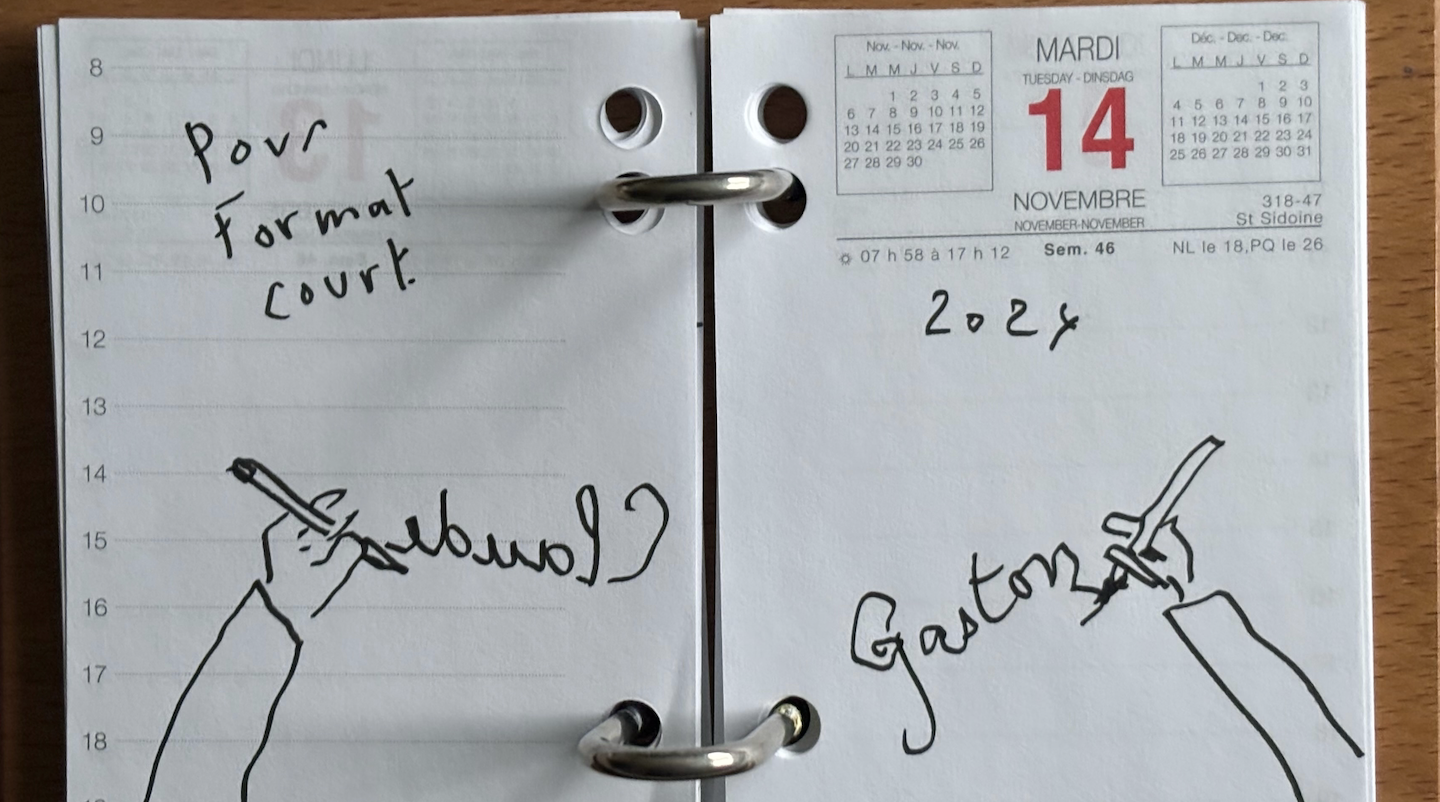 8
9
10
11
12
13
14
15
16
17
18
Pour
Format
court.
Claude
Nov. - Nov. - Nov.
L M M J V S D
1 2 3 4 5
6 7 8 9 10 11 12
13 14 15 16 17 18 19
20 21 22 23 24 25 26
27 28 29 30
MARDI
TUESDAY - DINSDAG
14
NOVEMBRE
NOVEMBER-NOVEMBER
Déc. - Dec. - Dec.
L M M J V S D
1 2 3
4 5 6 7 8 9 10
11 12 13 14 15 16 17
18 19 20 21 22 23 24
25 26 27 28 29 30 31
318-47
St Sidoine
07 h 58 à 17 h 12
Sem. 46
NL le 18,PQ le 26
2024
Gaston